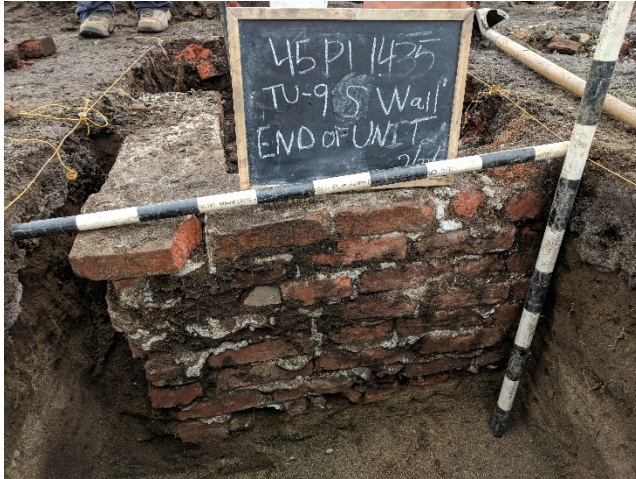 45PI 1435
TU-9 S Wall
END OF UNIT